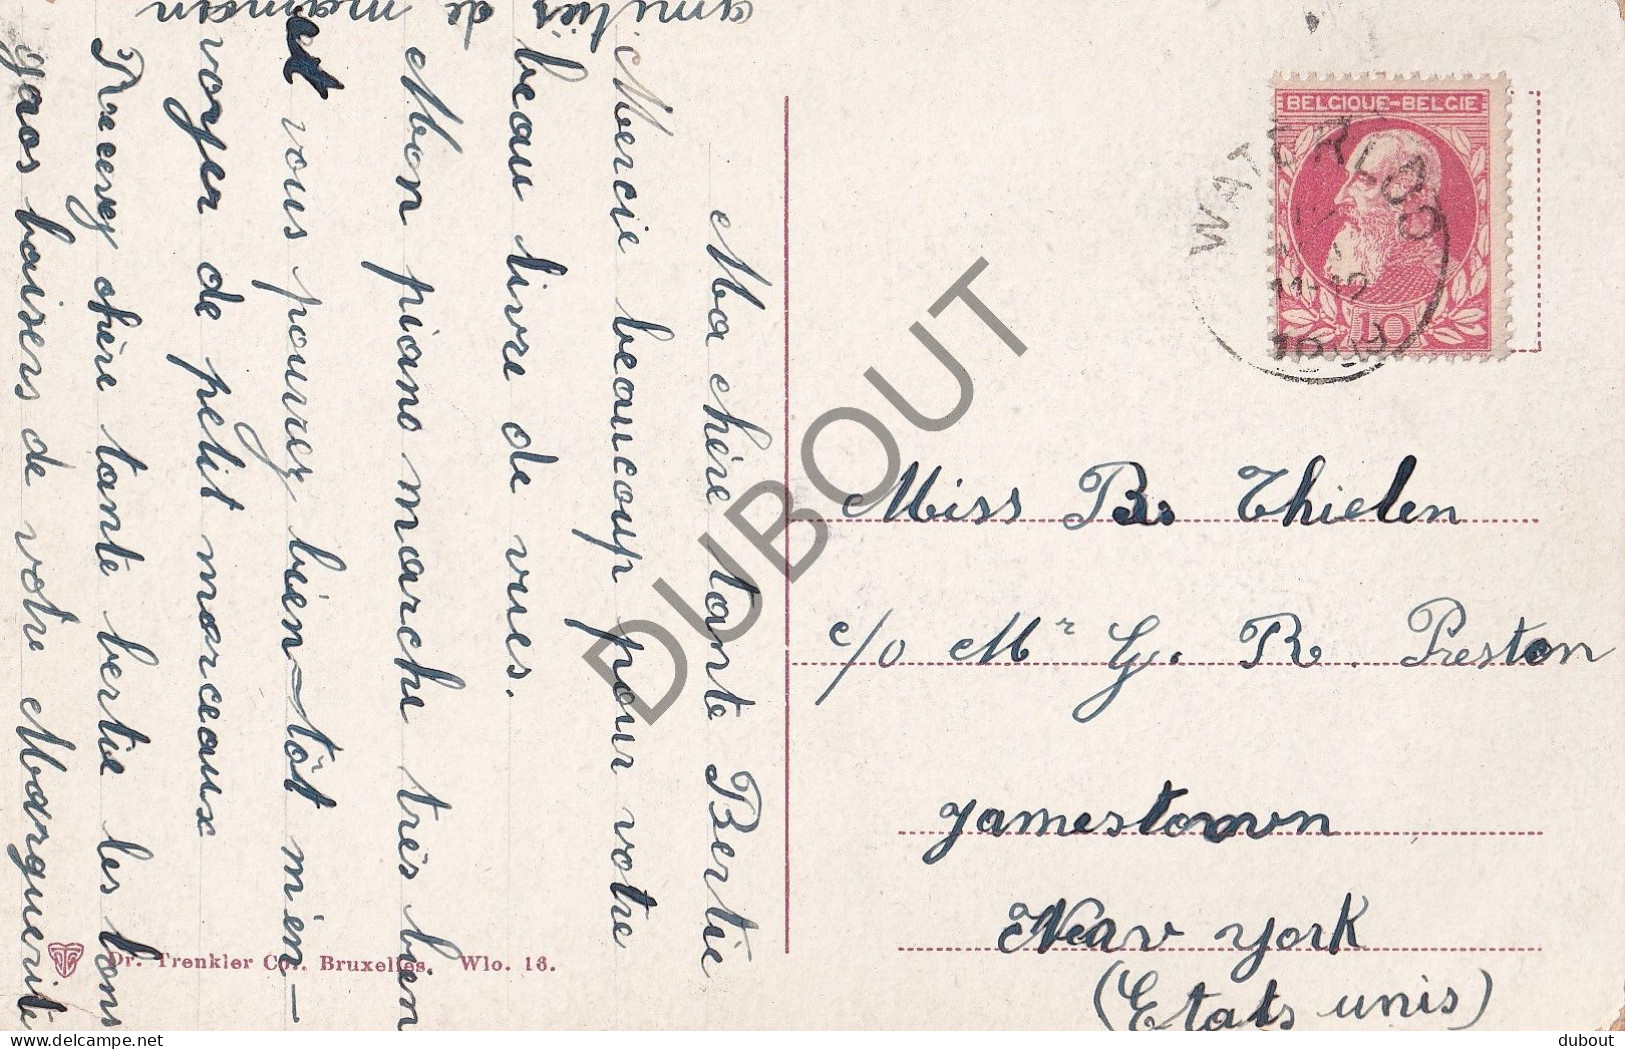 amitiés de maman
Ma chère tante Bertie
Mercie beaucoup pour votre
beau livre de vues.
Mon piano marche très bien
et vous pourrez bien-tôt m'en-
voyer de petit morceaux
Recevez chère tante bertie les bons
gros baisers de votre Marguerite
Dr. Trenkler Co., Bruxelles. Wlo. 16.
BELGIQUE-BELGIE
10
WATERLOO
11-12
1909
Miss B. Thielen
c/o Mr G. R. Preston
Jamestown
New York
(Etats unis)
DUBOUT
dubout